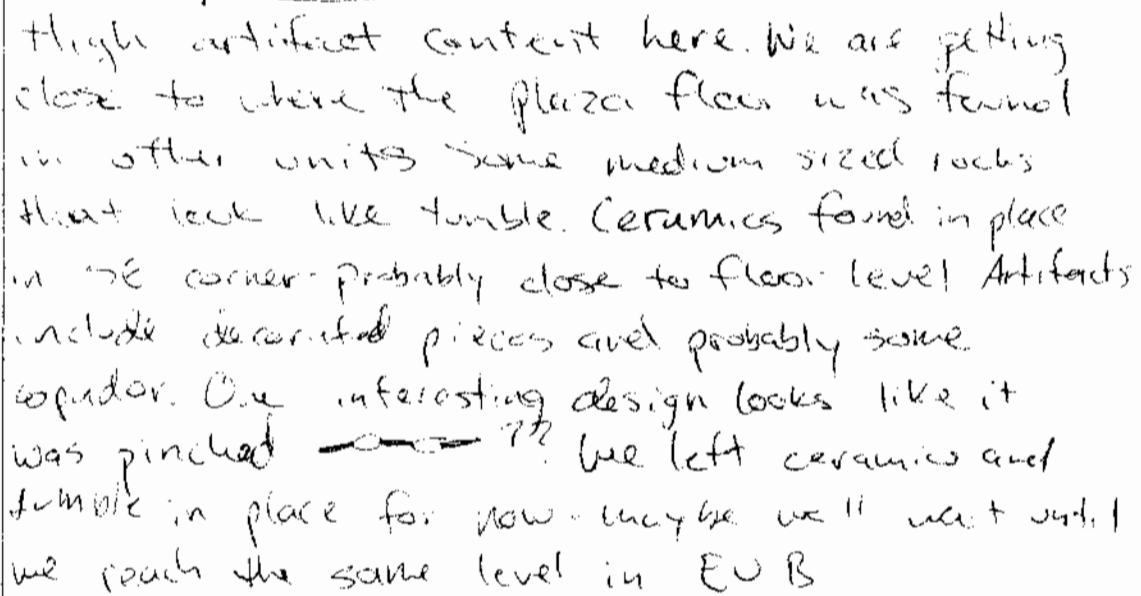 High artifact content here. We are getting
close to where the plaza floor was found
in other units some medium sized rocks
that look like tumble. Ceramics found in place
in SE corner - probably close to floor level Artifacts
include decorated pieces and probably some
copador. One interesting design looks like it
was pinched ??? We left ceramics and
tumble in place for now - maybe we'll wait until
we reach the same level in EU B